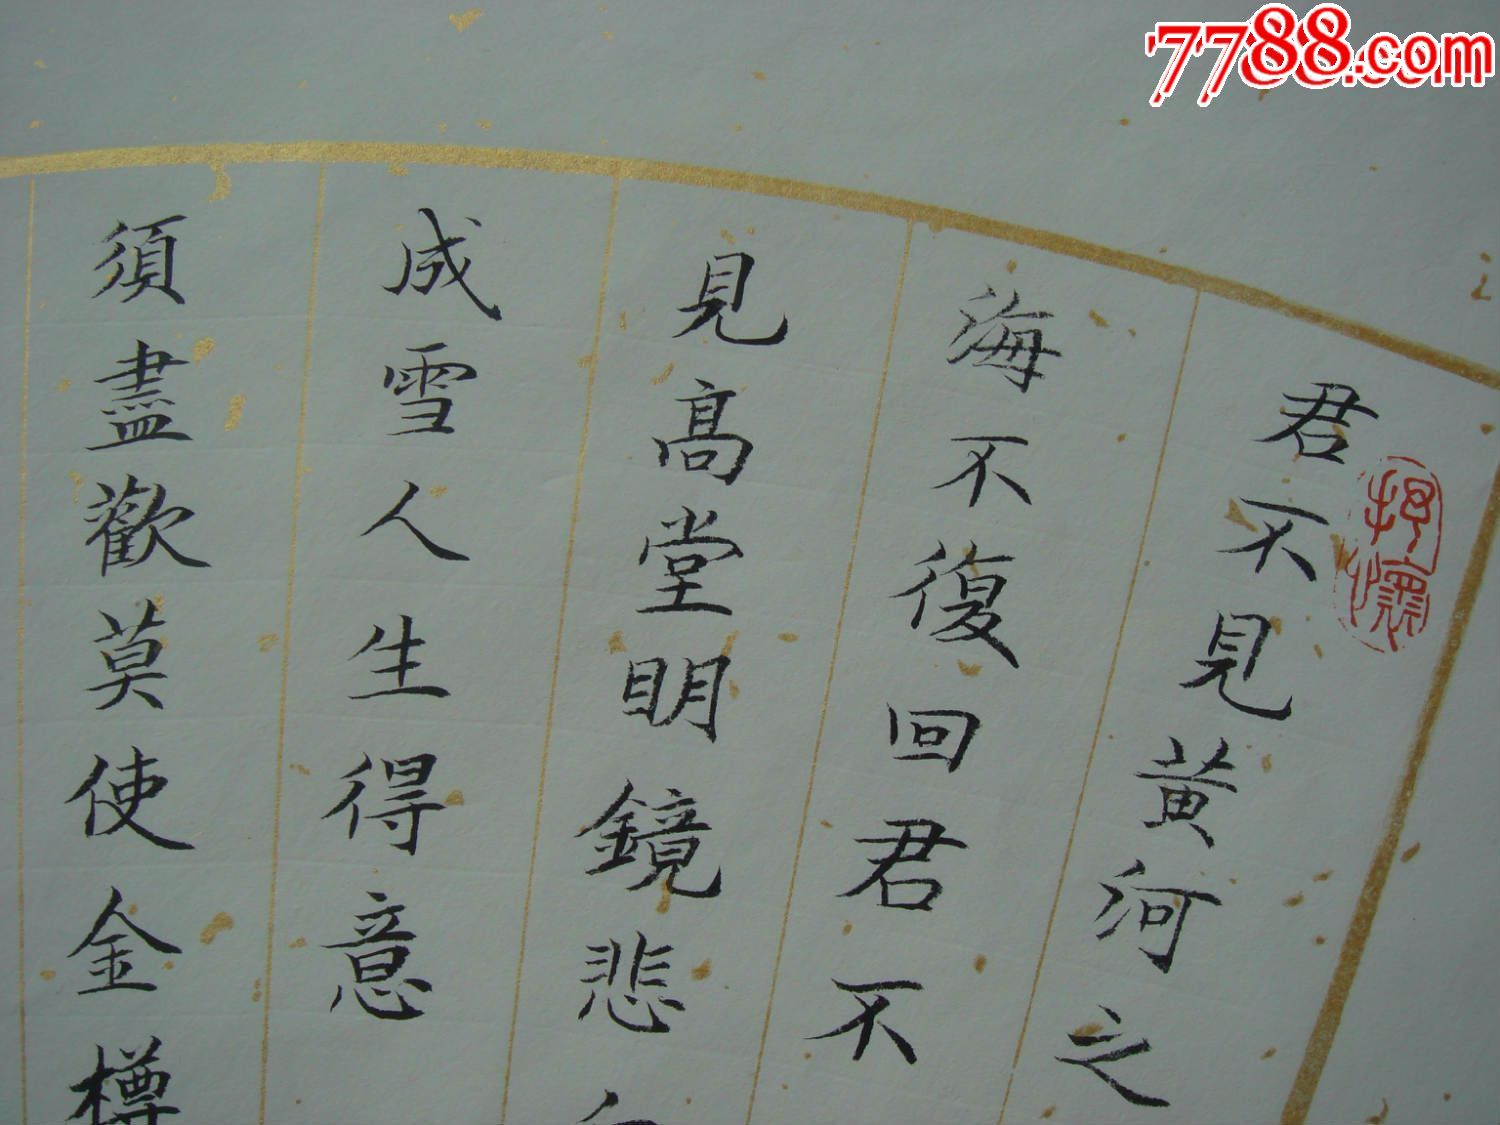 7788.com
君不見黄河之
海不復回君不
見高堂明鏡悲
成雪人生得意
須盡歡莫使金樽
抒懷